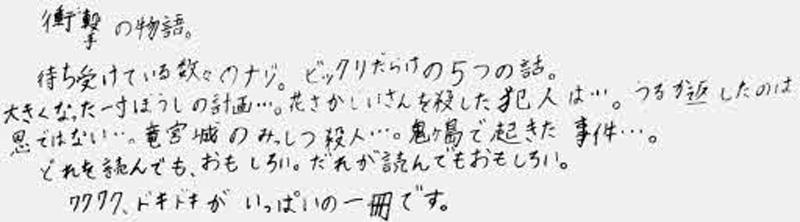 衝撃の物語。
待ち受けている数々のナゾ。ビックリだらけの5つの話。
大きくなった一寸ぼうしの計画…。花さかじいさんを殺した犯人は…。つるが返したのは
恩ではない…。竜宮城のみっしつ殺人…。鬼ヶ島で起きた事件…。
どれを読んでも、おもしろい。だれが読んでもおもしろい。
ワクワク、ドキドキがいっぱいの一冊です。